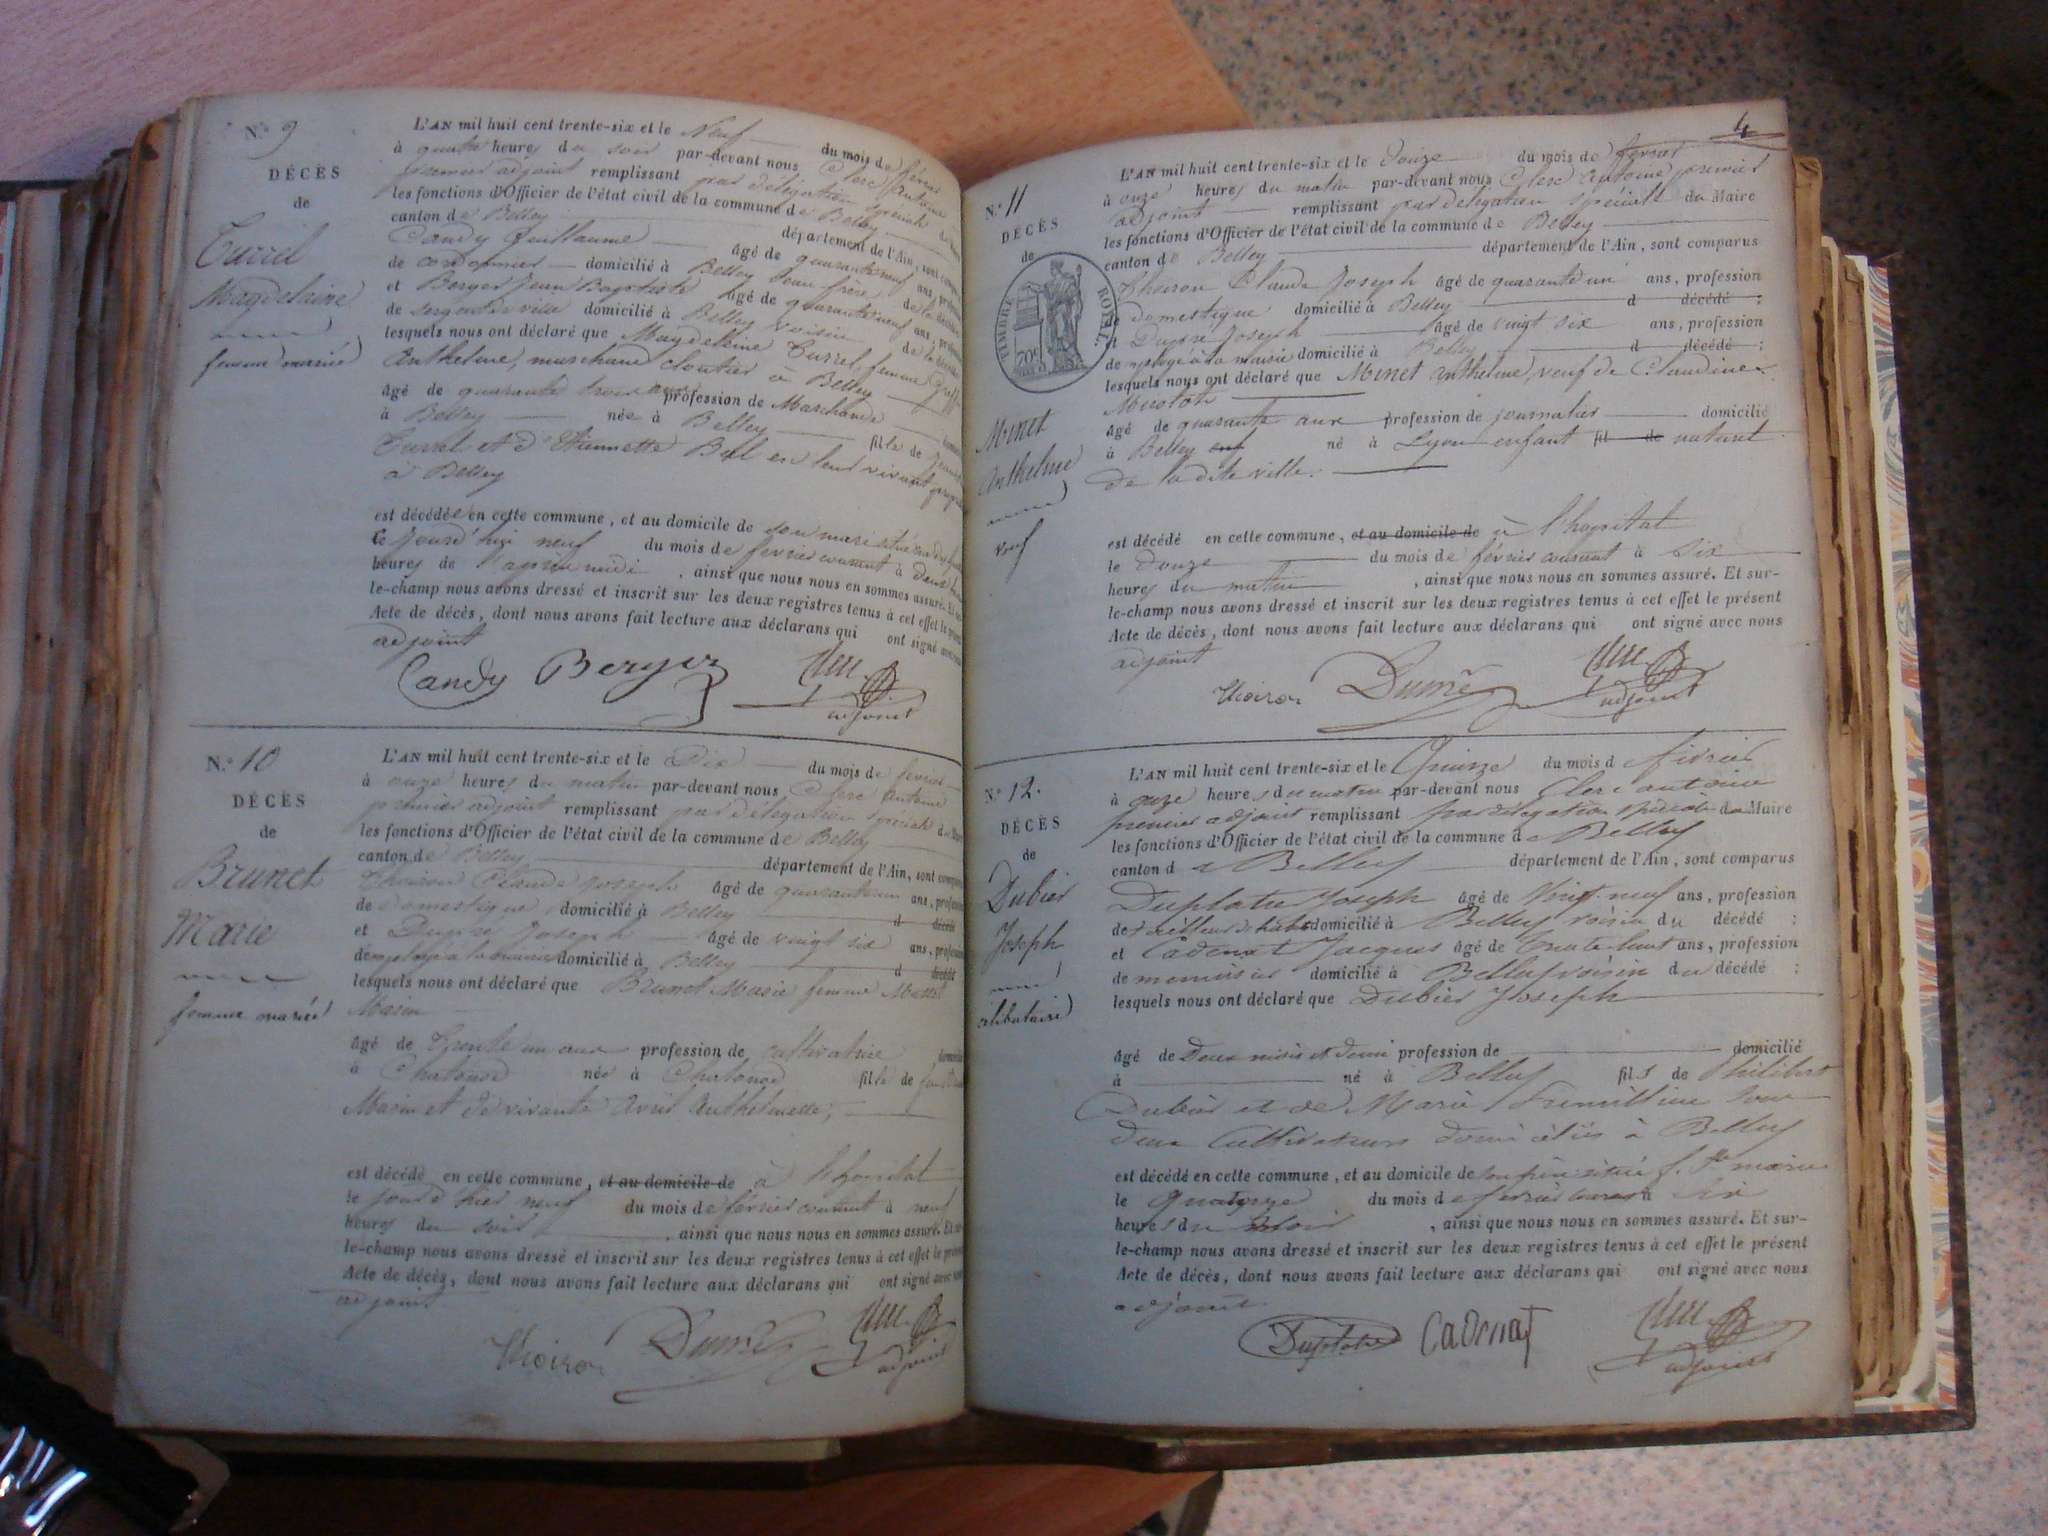 N.° 9
DÉCÈS
de
Turrel
Magdelaine
femme mariée
L'AN mil huit cent trente-six et le Neuf du mois de février
à quatre heures du soir par-devant nous Clerc Antoine
premier adjoint remplissant par délégation spéciale
les fonctions d'Officier de l'état civil de la commune de Belley
canton de Belley département de l'Ain, sont
Candy Guillaume âgé de quarante neuf ans,
de cordonnier domicilié à Belley beau frère de la
et Berger Jean Baptiste âgé de quarante neuf ans,
de sergent de ville domicilié à Belley voisin de la
lesquels nous ont déclaré que Magdeleine Turrel, femme
Anthelme, marchand cloutier à Belley
âgé de quarante trois ans profession de Marchande
à Belley née à Belley fille de
Turrel et d'Etiennette Bal en leur vivant
à Belley
est décédée en cette commune, et au domicile de son mari
le jourd'hui neuf du mois de février courant à deux
heures de l'après midi, ainsi que nous nous en sommes assuré. Et
le-champ nous avons dressé et inscrit sur les deux registres tenus à cet effet le
Acte de décès, dont nous avons fait lecture aux déclarans qui ont signé
adjoint
Candy Berger
adjoint
N.° 10
DÉCÈS
de
Brunet
Marie
femme mariée
L'AN mil huit cent trente-six et le Dix du mois de février
à onze heures du matin par-devant nous Clerc Antoine
premier adjoint remplissant par délégation spéciale
les fonctions d'Officier de l'état civil de la commune de Belley
canton de Belley département de l'Ain, sont
Thoiron Claude Joseph âgé de quarante un ans,
de Domestique domicilié à Belley d décédé
et Dumé Joseph âgé de vingt six ans,
d'employé à la mairie domicilié à Belley d décédé
lesquels nous ont déclaré que Brunet Marie femme
Marin
âgé de Trente un ans profession de cultivatrice
à Chatonod née à Chatonod fille de
Marin et de vivante Avril Anthelmette,
est décédé en cette commune, et au domicile de à l'hopital
le jour d'hier neuf du mois de février courant à neuf
heures du soir, ainsi que nous nous en sommes assuré. Et
le-champ nous avons dressé et inscrit sur les deux registres tenus à cet effet le
Acte de décès, dont nous avons fait lecture aux déclarans qui ont signé avec
adjoint
Thoiron Dumé
adjoint
4
N.° 11
DÉCÈS
de
TIMBRE ROYAL
70c
Minet
Anthelme
veuf
L'AN mil huit cent trente-six et le douze du mois de février
à onze heures du matin par-devant nous Clerc Antoine premier
adjoint remplissant par délégation spéciale du Maire
les fonctions d'Officier de l'état civil de la commune de Belley
canton de Belley département de l'Ain, sont comparus
Thoiron Claude Joseph âgé de quarante un ans, profession
de domestique domicilié à Belley d décédé ;
et Dumé Joseph âgé de vingt six ans, profession
de employé à la mairie domicilié à Belley d décédé ;
lesquels nous ont déclaré que Minet Anthelme, veuf de Claudine
âgé de quarante ans profession de journalier domicilié
à Belley né à Lyon enfant fil de naturel
de la dite ville.
est décédé en cette commune, et au domicile de à l'hopital
le douze du mois de février courant à six
heures du matin, ainsi que nous nous en sommes assuré. Et sur-
le-champ nous avons dressé et inscrit sur les deux registres tenus à cet effet le présent
Acte de décès, dont nous avons fait lecture aux déclarans qui ont signé avec nous
adjoint
Thoiron Dumé
adjoint
N.° 12.
DÉCÈS
de
Dubier
Joseph
célibataire
L'AN mil huit cent trente-six et le Quinze du mois d février
à onze heures du matin par-devant nous Clerc antoine
premier adjoint remplissant par délégation spéciale du Maire
les fonctions d'Officier de l'état civil de la commune de Belley
canton d e Belley département de l'Ain, sont comparus
Duplatre Joseph âgé de Vingt neuf ans, profession
de tailleur d'habits domicilié à Belley voisin du décédé ;
et Cadenat Jacques âgé de Trente huit ans, profession
de menuisier domicilié à Belley voisin du décédé ;
lesquels nous ont déclaré que Dubier Joseph
âgé de Deux mois et demi profession de domicilié
à né à Belley fils de Philibert
Dubier et de Marie tous
deux Cultivateurs domiciliés à Belley
est décédé en cette commune, et au domicile de son père situé f. Ste marie
le Quatorze du mois de février courant à Six
heures du soir, ainsi que nous nous en sommes assuré. Et sur-
le-champ nous avons dressé et inscrit sur les deux registres tenus à cet effet le présent
Acte de décès, dont nous avons fait lecture aux déclarans qui ont signé avec nous
adjoint
Duplatre Cadenat
adjoint